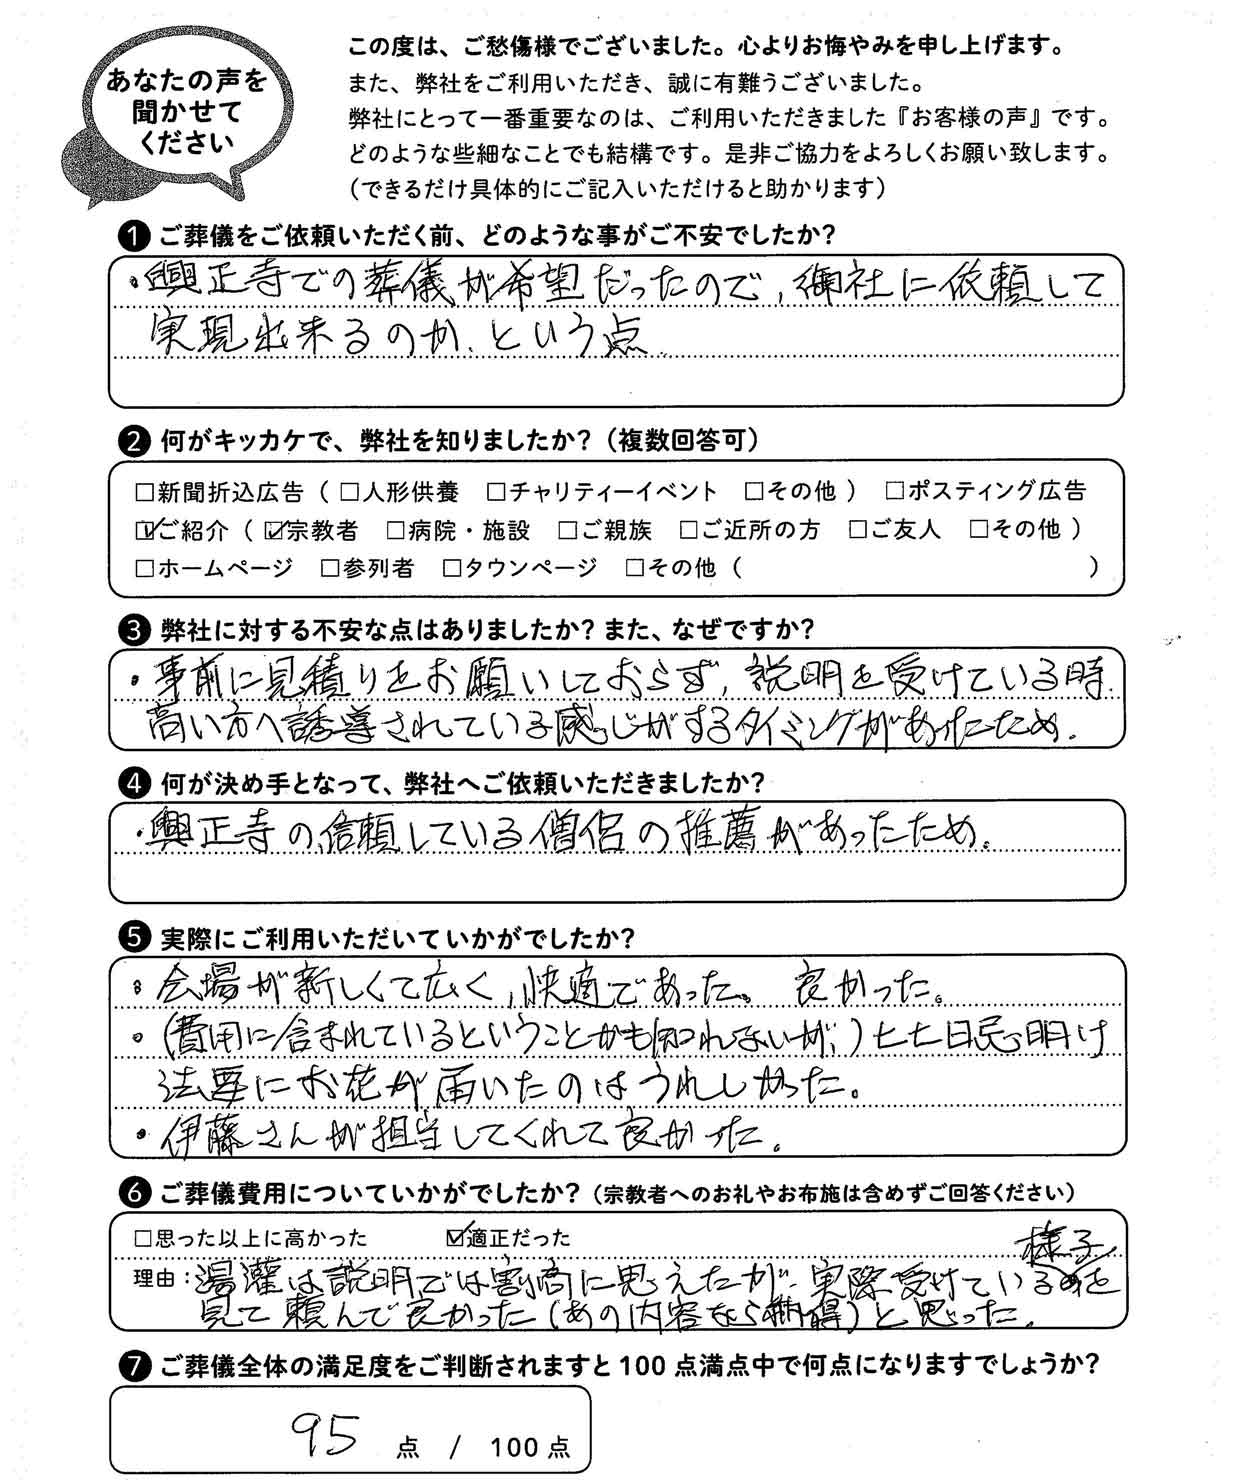 あなたの声を
聞かせて
ください
この度は、ご愁傷様でございました。心よりお悔やみを申し上げます。
また、弊社をご利用いただき、誠に有難うございました。
弊社にとって一番重要なのは、ご利用いただきました『お客様の声』です。
どのような些細なことでも結構です。是非ご協力をよろしくお願い致します。
（できるだけ具体的にご記入いただけると助かります）
❶ ご葬儀をご依頼いただく前、どのような事がご不安でしたか？
・興正寺での葬儀が希望だったので、御社に依頼して
実現出来るのか、という点
❷ 何がキッカケで、弊社を知りましたか？（複数回答可）
□新聞折込広告（ □人形供養 □チャリティーイベント □その他 ） □ポスティング広告
☑ご紹介（ ☑宗教者 □病院・施設 □ご親族 □ご近所の方 □ご友人 □その他 ）
□ホームページ □参列者 □タウンページ □その他（ ）
❸ 弊社に対する不安な点はありましたか？また、なぜですか？
・事前に見積りをお願いしておらず、説明を受けている時、
高い方へ誘導されている感じがするタイミングがあったため。
❹ 何が決め手となって、弊社へご依頼いただきましたか？
・興正寺の信頼している僧侶の推薦があったため。
❺ 実際にご利用いただいていかがでしたか？
・会場が新しくて広く、快適であった。良かった。
・(費用に含まれているということかも知れないが、)七七日忌明け
法要にお花が届いたのはうれしかった。
・伊藤さんが担当してくれて良かった。
❻ ご葬儀費用についていかがでしたか？（宗教者へのお礼やお布施は含めずご回答ください）
□思った以上に高かった ☑適正だった
様子
理由：湯灌は説明では割高に思えたが、実際受けているを
見て頼んで良かった(あの内容なら納得)と思った。
❼ ご葬儀全体の満足度をご判断されますと100点満点中で何点になりますでしょうか？
95 点 / 100点